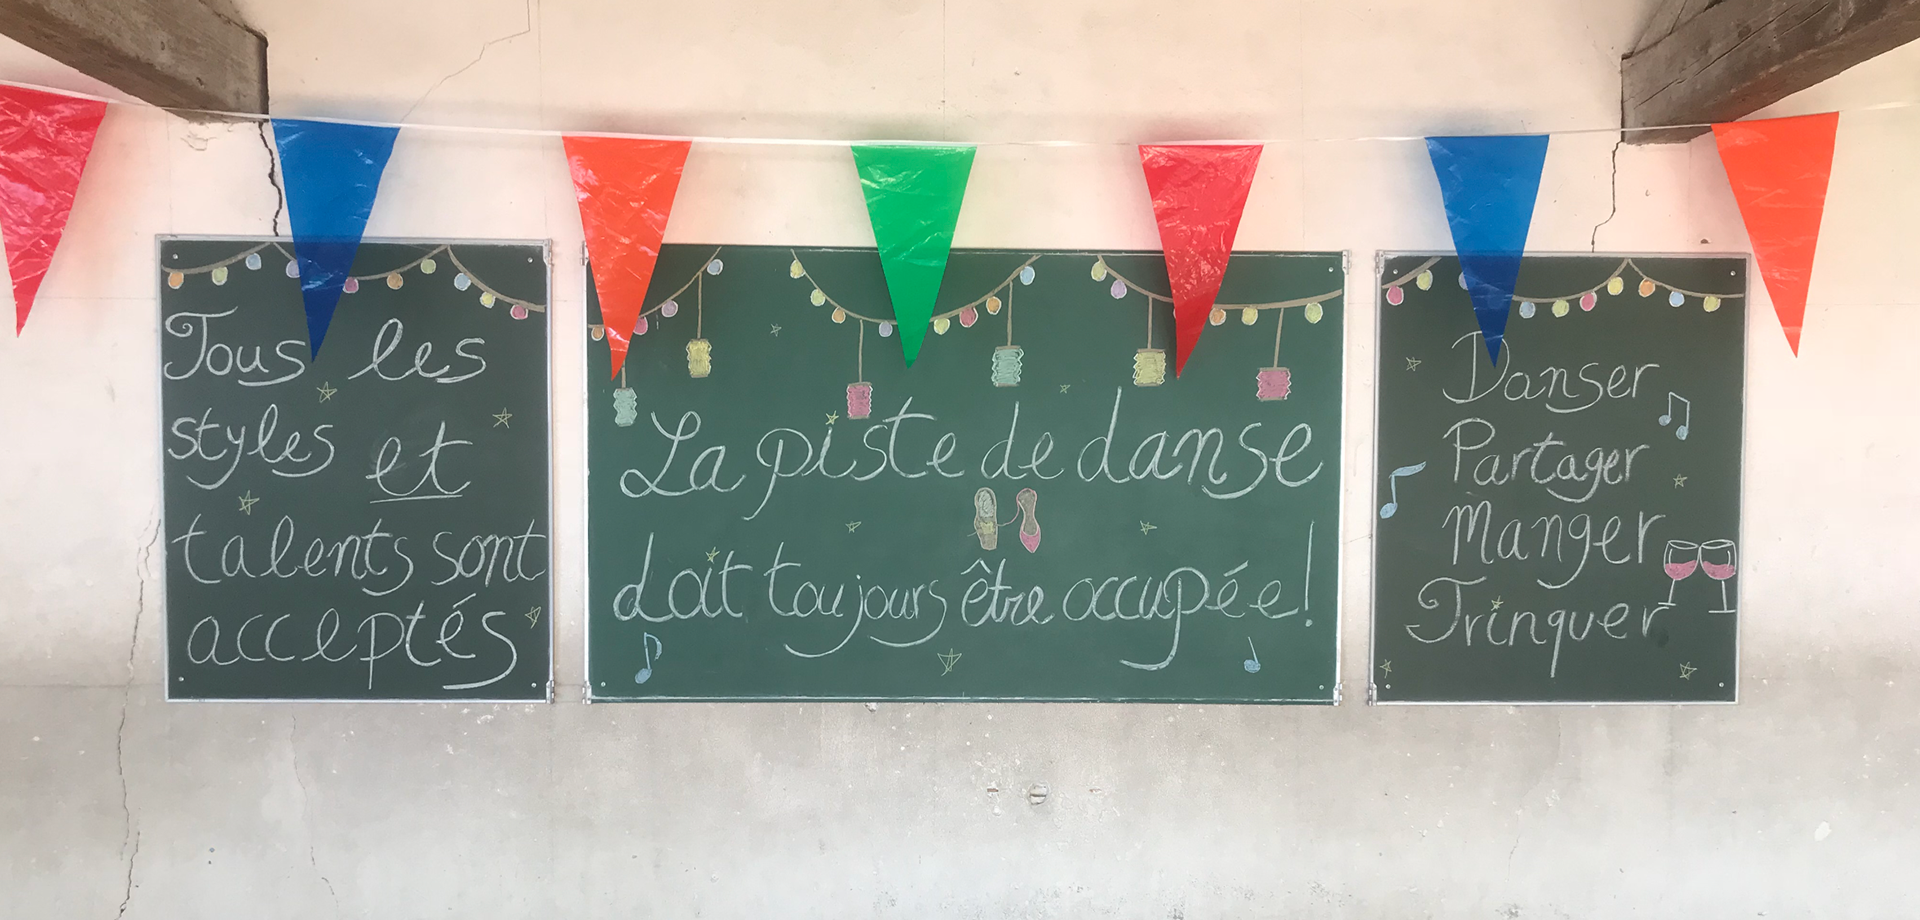 Tous les
styles et
talents sont
acceptés
La piste de danse
doit toujours être occupée!
Danser
Partager
Manger
Trinquer